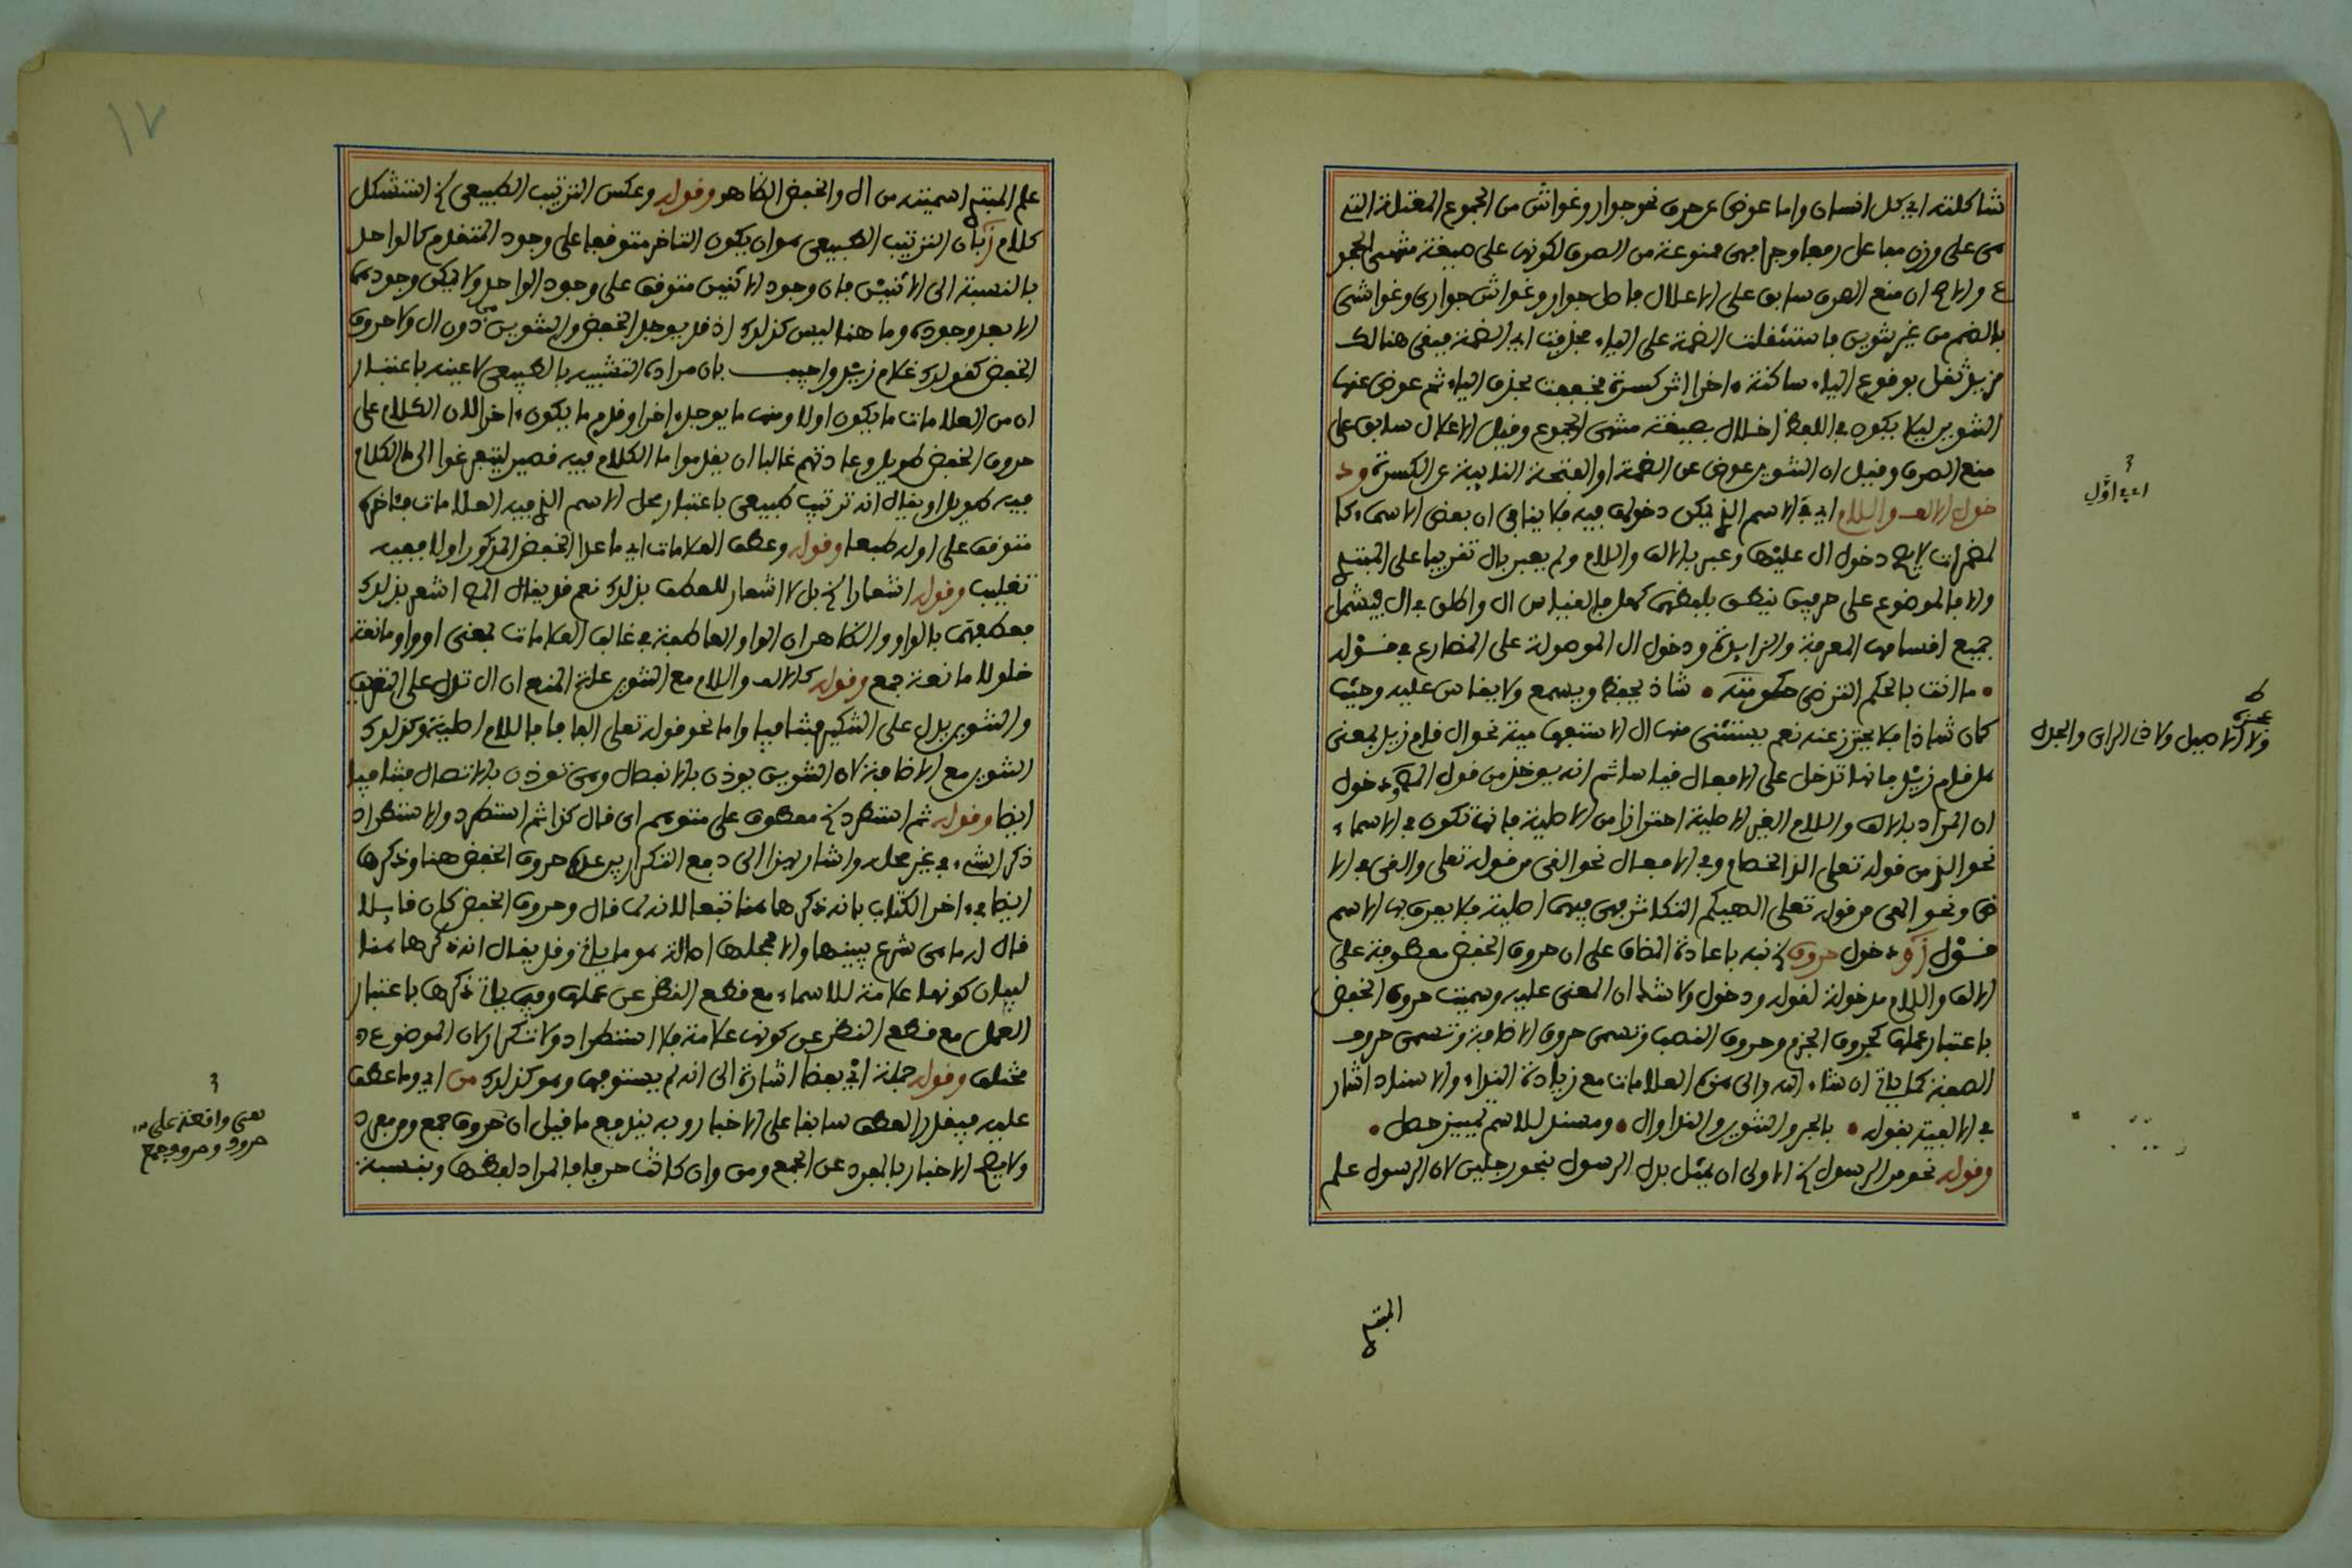 شاكلته اي كل انسان واما عوض عن حرف نحو جوار وغواش من الجموع المعتلة التي
هى على وزن مفاعل رفعا وجرا فهى ممنوعة من الصرف لكونها على صيغة منتهى الجمو
ع والاصح ان منع الصرف سابق على الاعلال فاصل جوار وغواش جوارى وغواشى
بالضم من غير تنوين فاستثقلت الضمة على الياء فحذفت اي الضمة فبقى هنالك
مزيد ثقل بوقوع الياء ساكنة ءاخرا اثر كسرة فخففت بحذف الياء ثم عوض عنها
التنوين ليلا يكون في اللفظ اخلال بصيغة منتهى الجموع وقيل الاعلال سابق على
منع الصرف وقيل ان التنوين عوض عن الضمة او الفتحة النايبة عن الكسرة ود
خول الالف واللام اي في الاسم الذي يمكن دخولها فيه فلا ينافى ان بعض الاسماء كا
لمضمرات لا يصح دخول ال عليها وعبر بالالف واللام ولم يعبر بال تقريبا على المبتدي
والا فالموضوع على حرفين ينطق بلفظهما كهل فالقياس ال واطلق في ال فيشمل
جميع اقسامها المعرفة والزايدة ودخول ال الموصولة على المضارع في قوله
• ما انت بالحكم الترضى حكومته • شاذ يحفظ ويسمع ولا يقاس عليه وحيث
كان شاذا فلا يحترز عنه نعم يستثنى منها ال الاستفهامية نحو ال قام زيد بمعنى
هل قام زيد فانها تدخل على الافعال قياسا ثم انه يوخذ من قول المص ودخول
ان المراد بالالف واللام الغير الاصلية احترازا من الاصلية فانها تكون في الاسماء
نحو الد من قوله تعلى الد الخصام وفي الافعال نحو القى من قوله تعلى والقى في الا
رض ونحو الهى من قوله تعلى الهيكم التكاثر فهى فيها اصلية فلا يعرف بها الاسم
قول ودخول حروف الخ نبه باعادة المضاف على ان حروف الخفض معطوفة على
الالف واللام مدخولة لقوله ودخول ولا شك ان المعنى عليه وسميت حروف الخفض
باعتبار عملها كحروف الجزم وحروف النصب وتسمى حروف الاضافة وتسمى حروف
الصفة كما ياتي ان شاء الله والى هذه العلامات مع زيادة النداء والاسناد اشار
في الالفية بقوله • بالجر والتنوين والندا وال • ومسند للاسم تمييز حصل •
وقوله نحو من الرسول الخ الاولى ان يمثل بدل الرسول بنحو رجلين لان الرسول علم
اي في اول
ولا الاصيل ولا ذى الراى والجدل
علم المبتدي اسميته من ال والخفض الظاهر وقوله وعكس الترتيب الطبيعى الخ استشكل
كلامه بان الترتيب الطبيعى هو ان يكون المتاخر متوقفا على وجود المتقدم كالواحد
بالنسبة الى الاثنين فان وجود الاثنين متوقف على وجود الواحد ولا يمكن وجودهما
الا بعد وجوده وما هنا ليس كذلك اذ قد يوجد الخفض والتنوين من دون ال ولا حروف
الخفض كقولك غلام زيد واجيب بان مراده التشبيه بالطبيعى لا عينه باعتبار
ان من العلامات ما يكون اولا ومنها ما يوجد ءاخرا وقدم ما يكون ءاخرا لان الكلام على
حروف الخفض طويل وعادتهم غالبا ان يقدموا ما الكلام فيه قصير ليتفرغوا الى ما الكلام
فيه طويل او يقال انه ترتيب طبيعى باعتبار محل الاسم الذي فيه العلامات فتاخره
متوقف على اوله طبعا وقوله وعطف العلامات اي ما عدا الخفض المذكور اولا ففيه
تغليب وقوله اشعارا الخ بل لا اشعار للعطف بذلك نعم قد يقال المص اشعر بذلك
بعطفها بالواو والظاهر ان الواو العاطفة في غالب العلامات بمعنى او واو مانعة
خلو لا مانعة جمع وقوله كالالف واللام مع التنوين علة المنع ان ال تدل على التعريف
والتنوين يدل على التنكير فتنافيا واما نحو قوله تعلى الفافا فاللام اصلية وكذلك
التنوين مع الاضافة لان التنوين يوذن بالانفصال وهى توذن بالاتصال فتنافيا
ايضا وقوله ثم استطرد الخ معطوف على متوهم اى قال كذا ثم استطرد والاستطراد
ذكر الشيء في غير محله واشار بهذا الى دفع التكرار بين عده حروف الخفض هنا وذكرها
ايضا في ءاخر الكتاب بانه ذكرها هنا تبعا لانه لما قال وحروف الخفض كان قايلا
قال له ما هى شرع يبينها والا فمحلها اصالة هو ما ياتي وقد يقال انه ذكرها هنا
لبيان كونها علامة للاسماء مع قطع النظر عن عملها وفيما ياتي ذكرها باعتبار
العمل مع قطع النظر عن كونها علامة فلا استطراد ولا تكرار لان الموضوع
مختلف وقوله جملة اي بعضا اشارة الى انه لم يستوفها وهو كذلك من اي وما عطف
عليه فيقدر العطف سابقا على الاخبار وبه يندفع ما قيل ان حروف جمع ومن مفرد
ولا يصح الاخبار بالمفرد عن الجمع ومن وان كانت حرفا فالمراد لفظها وبنسبة
يعنى واقعة على
حروف وحروف جمع
المبتدي
١٧